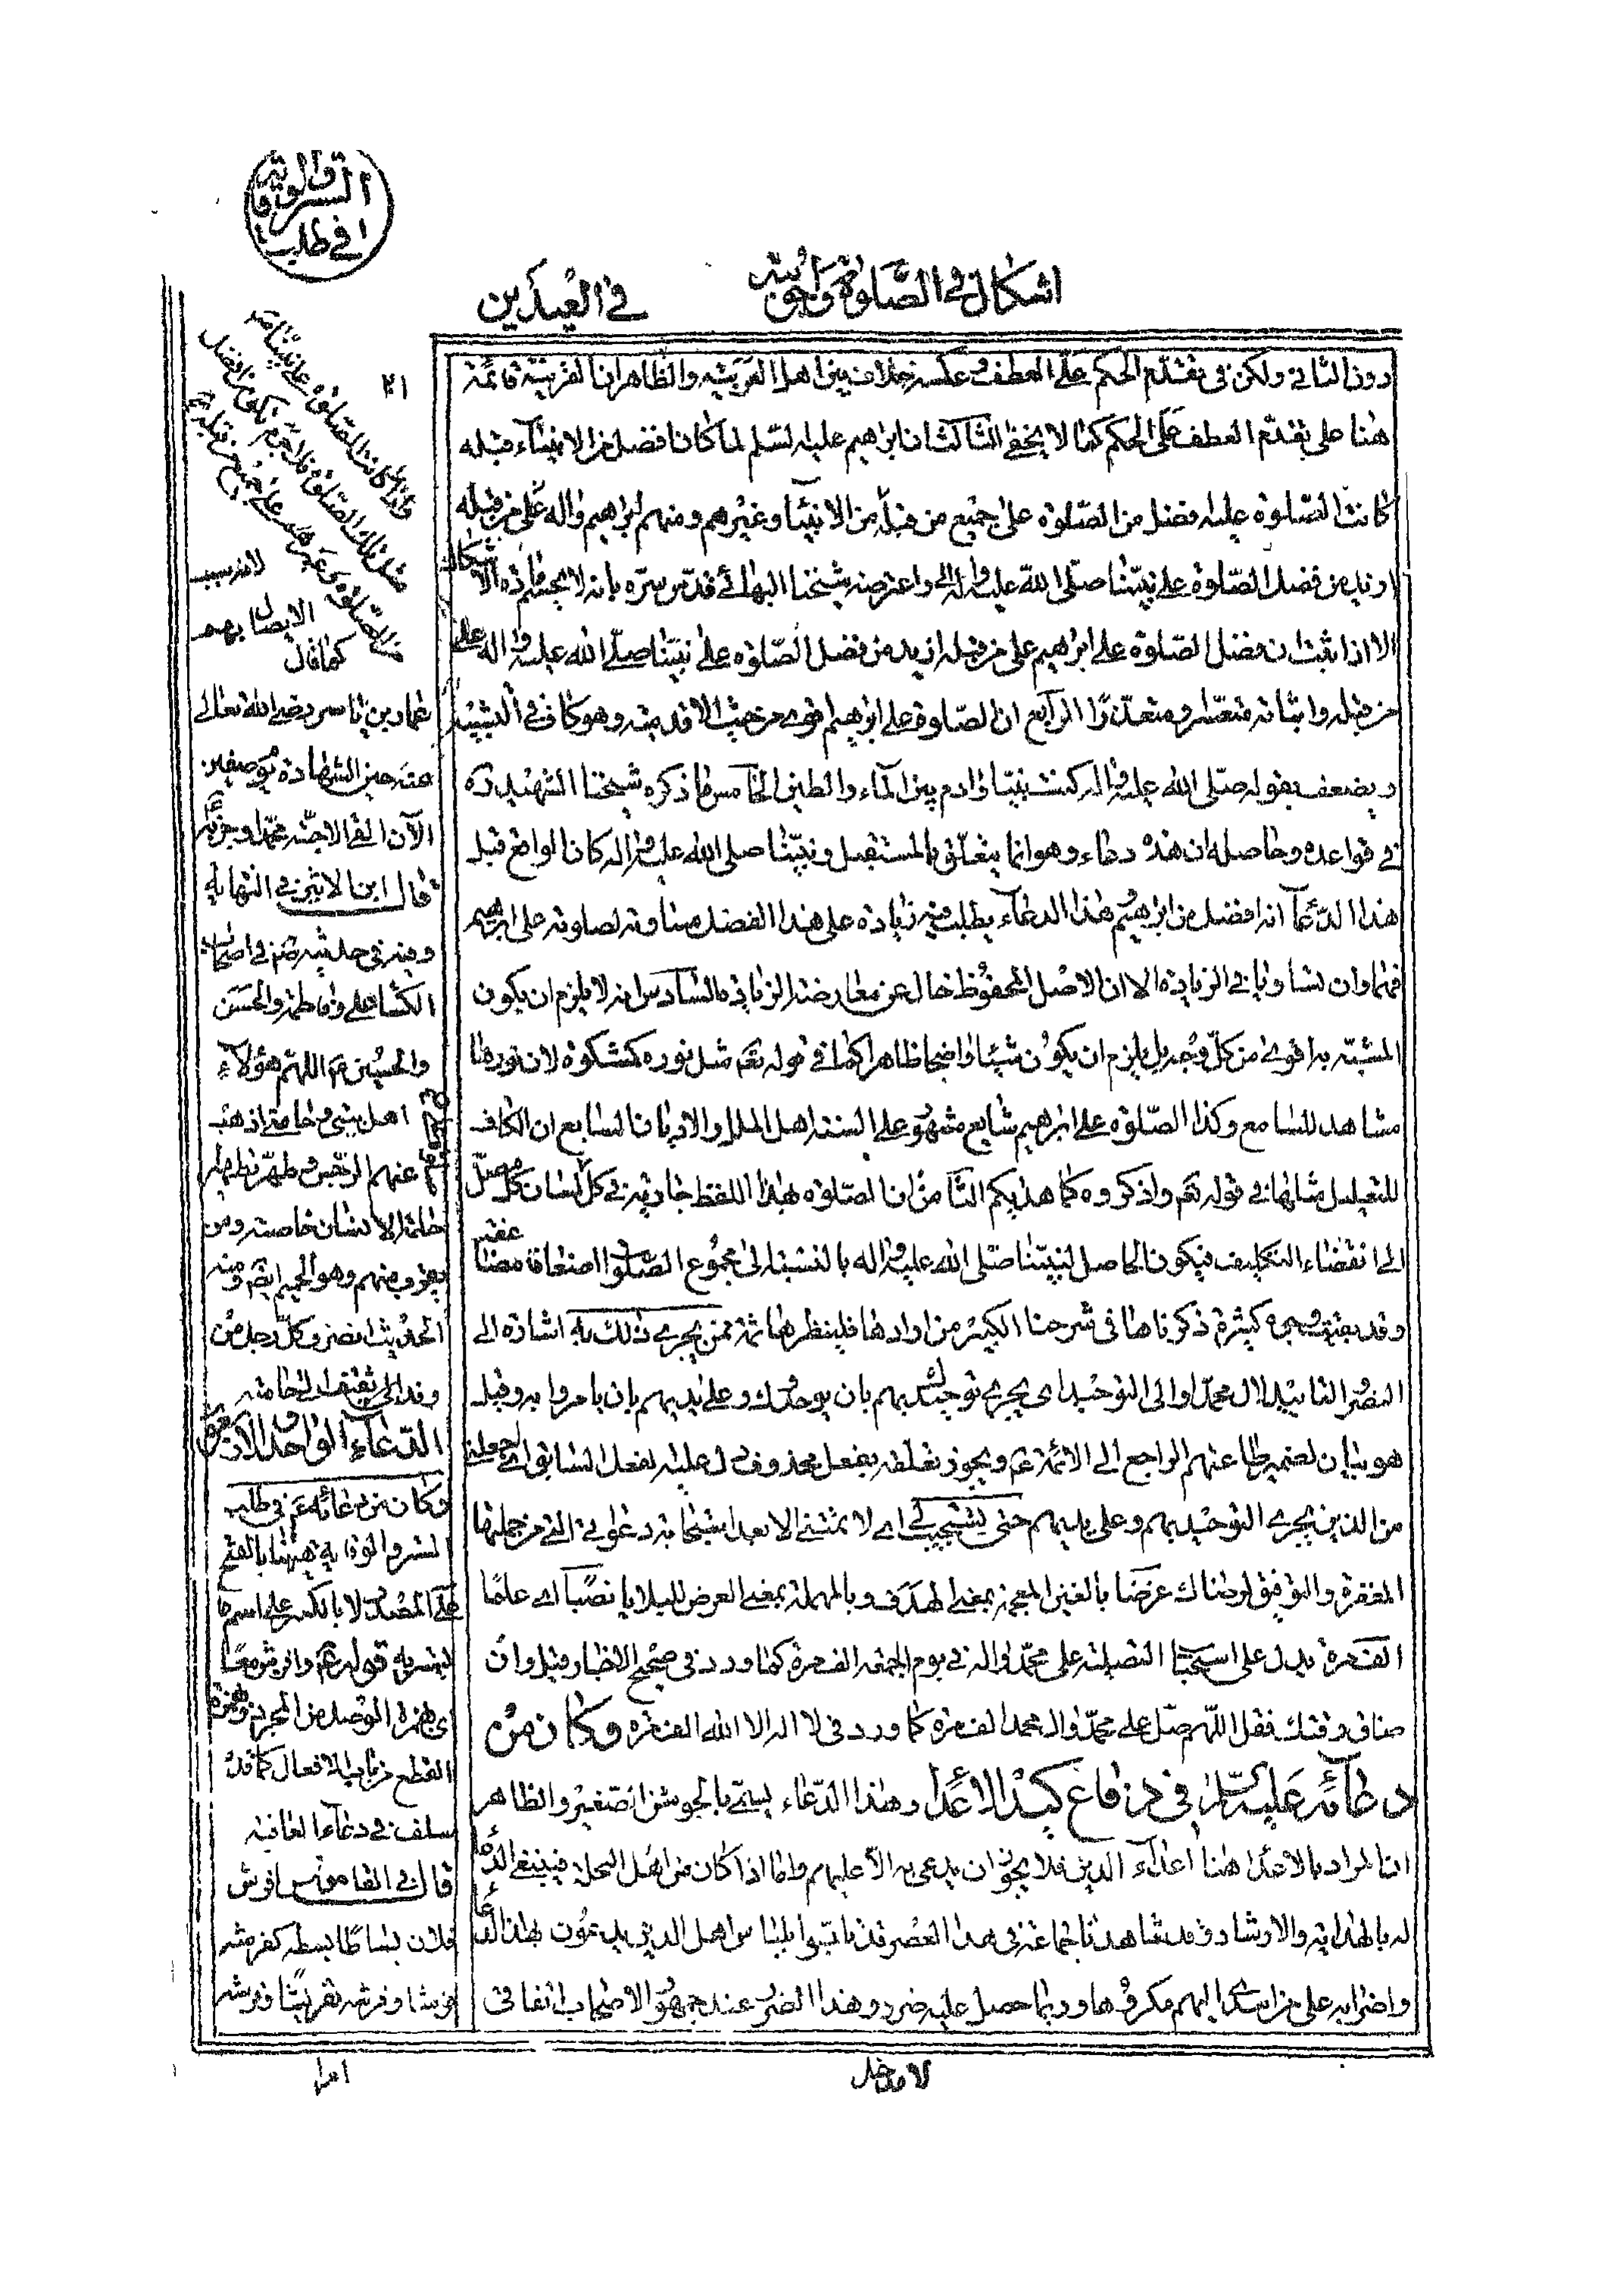 اشكال فى الصّلوة وَاجوبته
فى العيدَين
دون الثانى ولكن فى تقدّم الحكم على العطف وعكسه خلاف بين اهل العربيّة والظاهر ان القرينة قائمة
هٰهنا على تقدّم العطف على الحكم كما لا يخفى الثّالث ان ابراهيم عليه لسّلم لما كان افضل من الانبيآء قبله
كانت الصّلوة عليه افضل من الصّلوة على جميع من قبله من الانبيآ وغيرهم ومنهم ابراهيم واله على من قبله
ازيد من فضل الصّلوة على نبيّنا صلّى اللّه عليه واله واعترضه شيخنا البهائى قدّس سرّه بانه لا يحسم مادّة الاشكال
الا اذا ثبت ان فضل الصّلوة على ابراهيم على من قبله ازيد من فضل الصّلوة على نبيّنا صلّى اللّه عليه واله على
من قبله واثباته متعسّر ومتعذّر الرّابع ان الصّلوة على ابراهيم اقوى من حيث الاقدميّة وهو كاف فى التشبيه
ويضعف بقوله صلّى اللّه عليه واله كنت نبيّا وادم بين المآء والطين الخامس ما ذكره شيخنا الشهيد ره
فى قواعده وحاصله ان هذه دعاء وهو انما يتعلّق بالمستقبل ونبيّنا صلى اللّه عليه واله كان الواقع قبل
هذا الدّعآ انه افضل من ابرهيم وهذا الدعآء يطلب فيه زيادة على هذا الفضل مساوية لصلوته على ابرهيم
فهما وان تساويا فى الزيادة الا ان الاصل المحفوظ خال عن معارضة الزيادة السّادس انه لا يلزم ان يكون
المشبّه به اقوى من كلّ وجه بل يلزم ان يكون شيئا واضحا ظاهرا كما فى قوله تعم مثل نوره كمشكوة لان نورها
مشاهد للسّامع وكذا الصّلوة على ابراهيم شايع مشهور على السنة اهل الملل والاديان السّابع ان الكاف
للتعليل مثلها فى قوله تعم واذكروه كما هذيكم الثّامن ان الصّلوة بهذا اللفظ جارية فى كل لسان كل مصلّ
الى انقضاء التكليف فيكون الحاصل لنبيّنا صلّى اللّه عليه واله بالنسبة الى مجموع الصّلوا اضعافا مضاعفة
وقد بقيت وجوه كثيرة ذكرناها فى شرحنا الكبير من ارادها فلينظرها ثمة ممّن يجرى ذلك به اشارة الى
النصر التاييد لال محمّد او الى التوحيد اى يجرى توحيدك بهم بان يوحدوك وعلى يديهم بان يامروا به وقيل
هو بيان لضمير عنهم الراجع الى الائمة ع م ويجوز تعلّقه بفعل محذوف دل عليه لفعل السّابق اى اجعلنى
من الذين يجرى التوحيد بهم وعلى يديهم حتى تستجيب لى اى لا تمتنى الا بعد استجابة دعواتى التى من جملتها
المغفرة والتوفيق لرضاك غرضا بالغين المعجمة بمعنى الهدف وبالمهملة بمعنى العرض للبلايا نصبًا اى علمًا
الف مرة يدل على استحبا التصلية على محمّد واله فى يوم الجمعة الف مرة كما ورد فى صحيح الاخبار وقيل وان
ضاق وقتك فقل اللّهم صلّ على محمّد وال محمد الف مرة كما ورد فى لا اله الا اللّه الف مرة وكان من
دعآئه عليه السّلم فى دفاع كيد الاعدآ وهذا الدّعاء يسمّى بالجوشن الصّغير والظاهر
ان المراد بالاعدا هنا اعدآء الدين فلا يجوز ان يدعى به الّا عليهم وامّا اذا كان من اهل النحلة فينبغى الدّعا
له بالهداية والارشاد وقد شاهدنا جماعة فى هذا العصر قد تلبّسوا بلباس اهل الدين يدعون بهذا الدعا
واضرابه على من اسدى اليهم مكروها وربما حصل عليه ضرر وهذا الضرب عند جمهور الاصحاب اتفاقى
٢١
واذا كانت الصّلوة على نبيّنا ص
مثل تلك الصّلوة فلا جرم تكون افضل
من الصّلوة على جميع من تقدّم
لانه سبب
الايصال بهم
كما قال
عمار بن ياسر رضى اللّه تعالى
عنه حين الشهادة يوم صفين
الآن القى الاحبّة محمّدا وحزبه
قال ابن الاثير فى النهايه
ومنه حديثه فى اصحاب
الكسا على وفاطمة والحسن
والحسين ع م اللّهم هؤلآء
اهل بيتى وحامتى اذهب
عنهم الرّجس وطهّرهم تطهيرا
حامّة الانسان خاصته ومن
يقرب منهم وهو الحميم ايضا ومنه
الحديث انصرف كل رجل من
وفد الى ثقيف الى حامته
الدّعآء الواحد والاربعون
وكان من دعائه ع فى طلب
الستر والوقاية هيهنا بالفتح
على المصدر لا بالكسر على اسم ما
يستر به قوله ع وافرش معًا
اى بهمزة الوصل من المجرد وهمزة
القطع من باب الافعال كما قد
سلف فى دعآء العافية
قال فى القاموس افرش
فلان بساطًا بسطه كفرشه
فرشا وفرشه تفريشًا وفرشه
لا مدخل
امرا